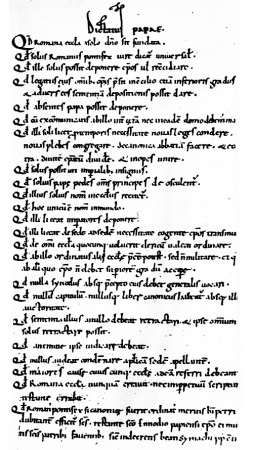 Dictatus papae.
Qd Romana eccla a solo dno sit fundata.
Qd solus Romanus pontifex iure dicat universal'.
Qd ille solus possit deponere epos vl reconciliare.
Qd legatus ei' omib. epis presit in concilio etiam inferioris gradus
& adversus eos sententiam depositionis possit dare.
Qd absentes papa possit deponere.
Qd cu excommunicatis ab illo int cetera nec in eade domo debem' manere
Qd illi soli licet p temporis necessitate novas leges condere.
novas plebes congregare. de canonica abbatia facere. & econ
tra. divite epatu dividere. & inopes unire.
Qd solus possit uti imperialib. insigniis.
Qd solius pape pedes oms principes deosculent'.
Qd illius solius nom in ecclis recitet'.
Qd hoc unicu e nom in mundo.
Qd illi liceat imperatores deponere.
Qd illi liceat de sede ad sede necessitate cogente epos transmutare
Qd de omi eccla quocunq voluerit clericu valeat ordinare.
Qd ab illo ordinatus alii eccle pee potest. sed n militare. & qd
ab aliquo epo n debet supiore gradu accipe.
Qd nulla synodus absq pcepto ei' debet generalis vocari.
Qd nullu capitulu nullusq liber canonicus habeat' absq illi'
auctoritate.
Qd sententia illius a nullo debeat retractari. & ipse omnium
solus retractare possit.
Qd a nemine ipse iudicare debeat.
Qd nullus audeat condemnare aplica sede apellante.
Qd maiores cause cui'cunq eccle ad ea referri debeant
Qd Romana eccla nunquam erravit nec imppetuu scriptura
testante errabit.
Qd Roman' pontifex si canonice fuerit ordinatus meritis bi petri
indubitant' efficit' scs. testante sco Ennodio papiensi epo ei mul
tis scis patrib' faventib'. sicut in decretis beati symachi pp c&